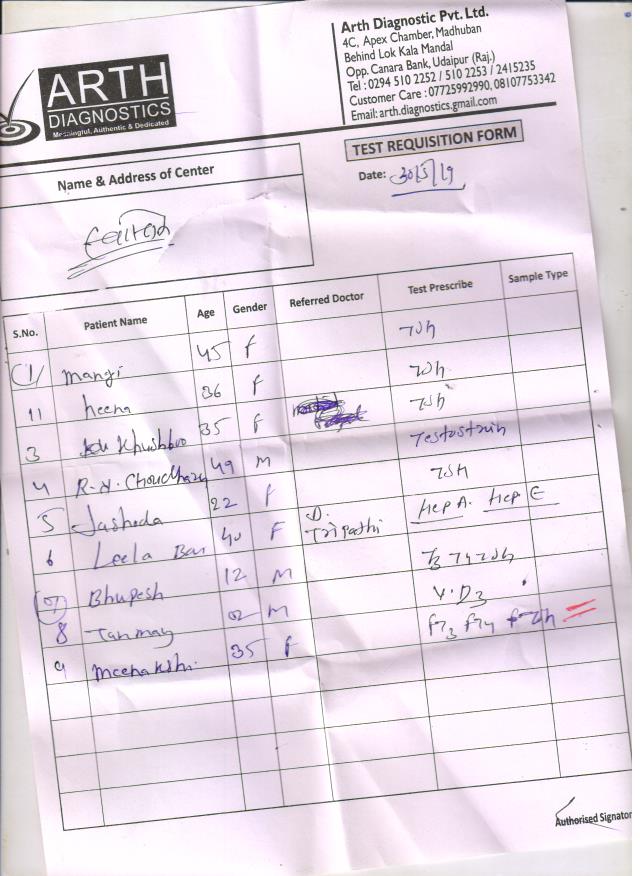 ARTH
DIAGNOSTICS
Meaningful, Authentic & Dedicated
Arth Diagnostic Pvt. Ltd.
4C, Apex Chamber, Madhuban
Behind Lok Kala Mandal
Opp. Canara Bank, Udaipur (Raj.)
Tel : 0294 510 2252 / 510 2253 / 2415235
Customer Care : 07725992990, 08107753342
Email: arth.diagnostics.gmail.com
TEST REQUISITION FORM
Name & Address of Center
Date: 30/5/19
S.No. Patient Name Age Gender Referred Doctor Test Prescribe Sample Type
1 mangi 45 f TSh
11 heena 36 f TSh
3 Khushboo 35 f TSh
4 R.N. Choudhary 49 M Testostrain
5 Jashoda 22 f TSH
6 Leela Bai 40 F D. Tripathi Hep A. Hep E
7 Bhupesh 12 M T3 T4 TSh
8 Tanmay 02 M V.D3
9 meenakshi 35 f fT3 fT4 TSh
Authorised Signator